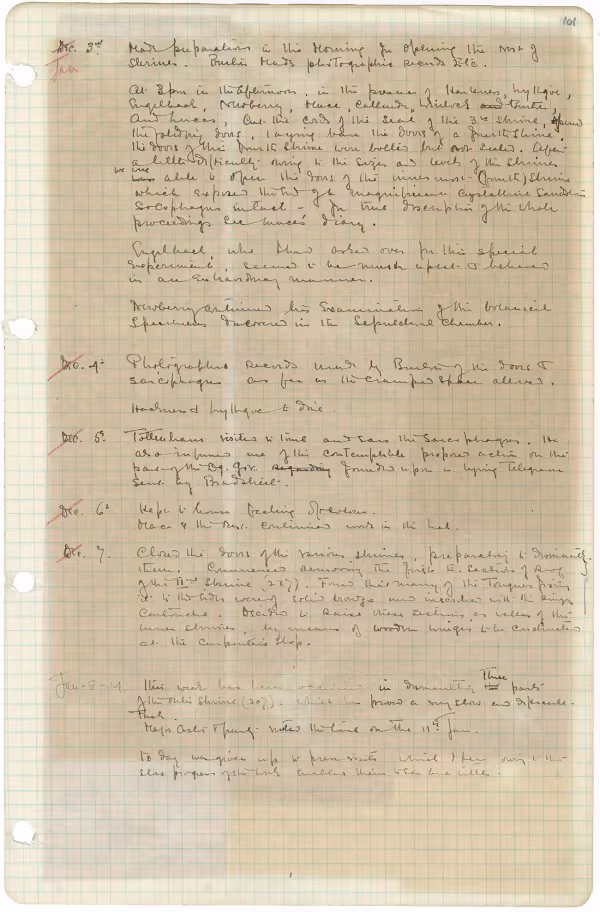 101
Dec. 3rd Made preparations in the morning for opening the rest of
Jan shrines. Burton made photographic records etc.
At 3pm in the afternoon, in the presence of Harkness, Lythgoe,
Engelbach, Newberry, Mace, Callender, Winlock and
and Lucas, cut the cords of the seal of the 3rd shrine, opened
the folding doors, laying bare the doors of a fourth shrine.
the doors of this fourth shrine were bolted but not sealed. After
a little difficulty owing to the sizes and levels of the shrines
we were able to open the doors of the innermost (fourth) shrine
which exposed the end of a magnificent crystalline sandstone
Sarcophagus intact - for true description of the whole
proceedings see Mace's diary.
Engelbach, who I had asked over for this special
experiment, seemed to be much upset & behaved
in an extraordinary manner.
Newberry continued his examination of the botanical
specimens discovered in the Sepulchral Chamber.
Dec. 4th Photographic records made by Burton of the doors &
sarcophagus as far as the cramped space allowed.
Harkness & Lythgoe to dine.
Dec. 5th Tottenham visited the tomb and saw the sarcophagus. He
also informed me of the contemptible proposed action on the
part of the Eg. Gov. founded upon a lying telegram
sent by Bradstreet.
Dec. 6th Kept to house feeling
Mace & the rest continued work in the lab.
Dec. 7. Closed the doors of the various shrines, preparatory to dismantling
them. Commenced removing the sections of roof
of the IInd Shrine (237). Found that many of the tongues fixing
it to the sides were of solid bronze and inscribed with the King's
Cartouche. Decided to raise these sections, as well as of the
inner shrines, by means of wooden wedges to be constructed
at the carpenter's shop.
Jan-8-24 This week has been occupied in dismantling three parts
of the outer shrine (207). which has proved a very slow and
task.
Major Astor & party visited the tomb on the 11th Jan.
To day was given up to press visits which I fear owing to the
slow progress of the work enables them to see but little.